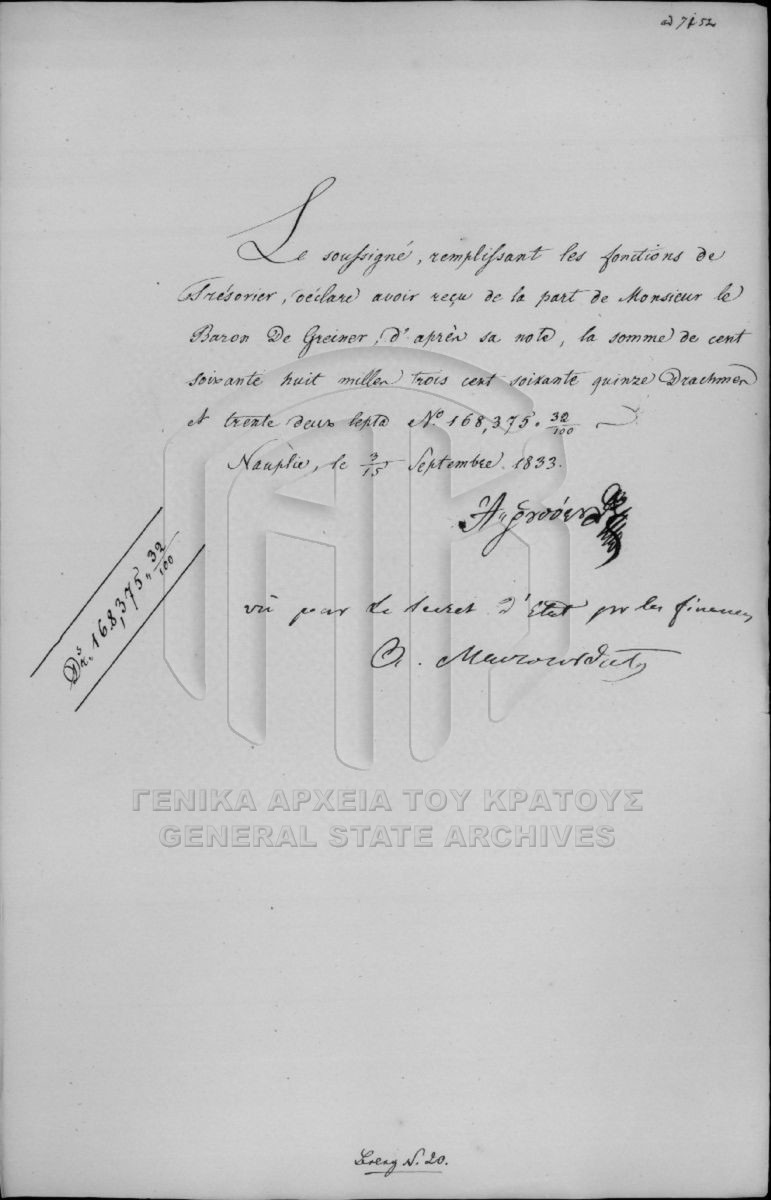 ad 7152
Le soussigné, remplissant les fonctions de
Trésorier, déclare avoir reçu de la part de Monsieur le
Baron De Greiner, d'après sa note, la somme de cent
soixante huit milles trois cent soixante quinze Drachmes
et trente deux lepta No. 168,375. 32/100
Nauplie, le 3/15 Septembre. 1833.
Drs. 168,375 " 32/100
vu pour le Secret. d'Etat pr les finances
A. Maurocordato
ΓΕΝΙΚΑ ΑΡΧΕΙΑ ΤΟΥ ΚΡΑΤΟΥΣ
GENERAL STATE ARCHIVES
N. 20.